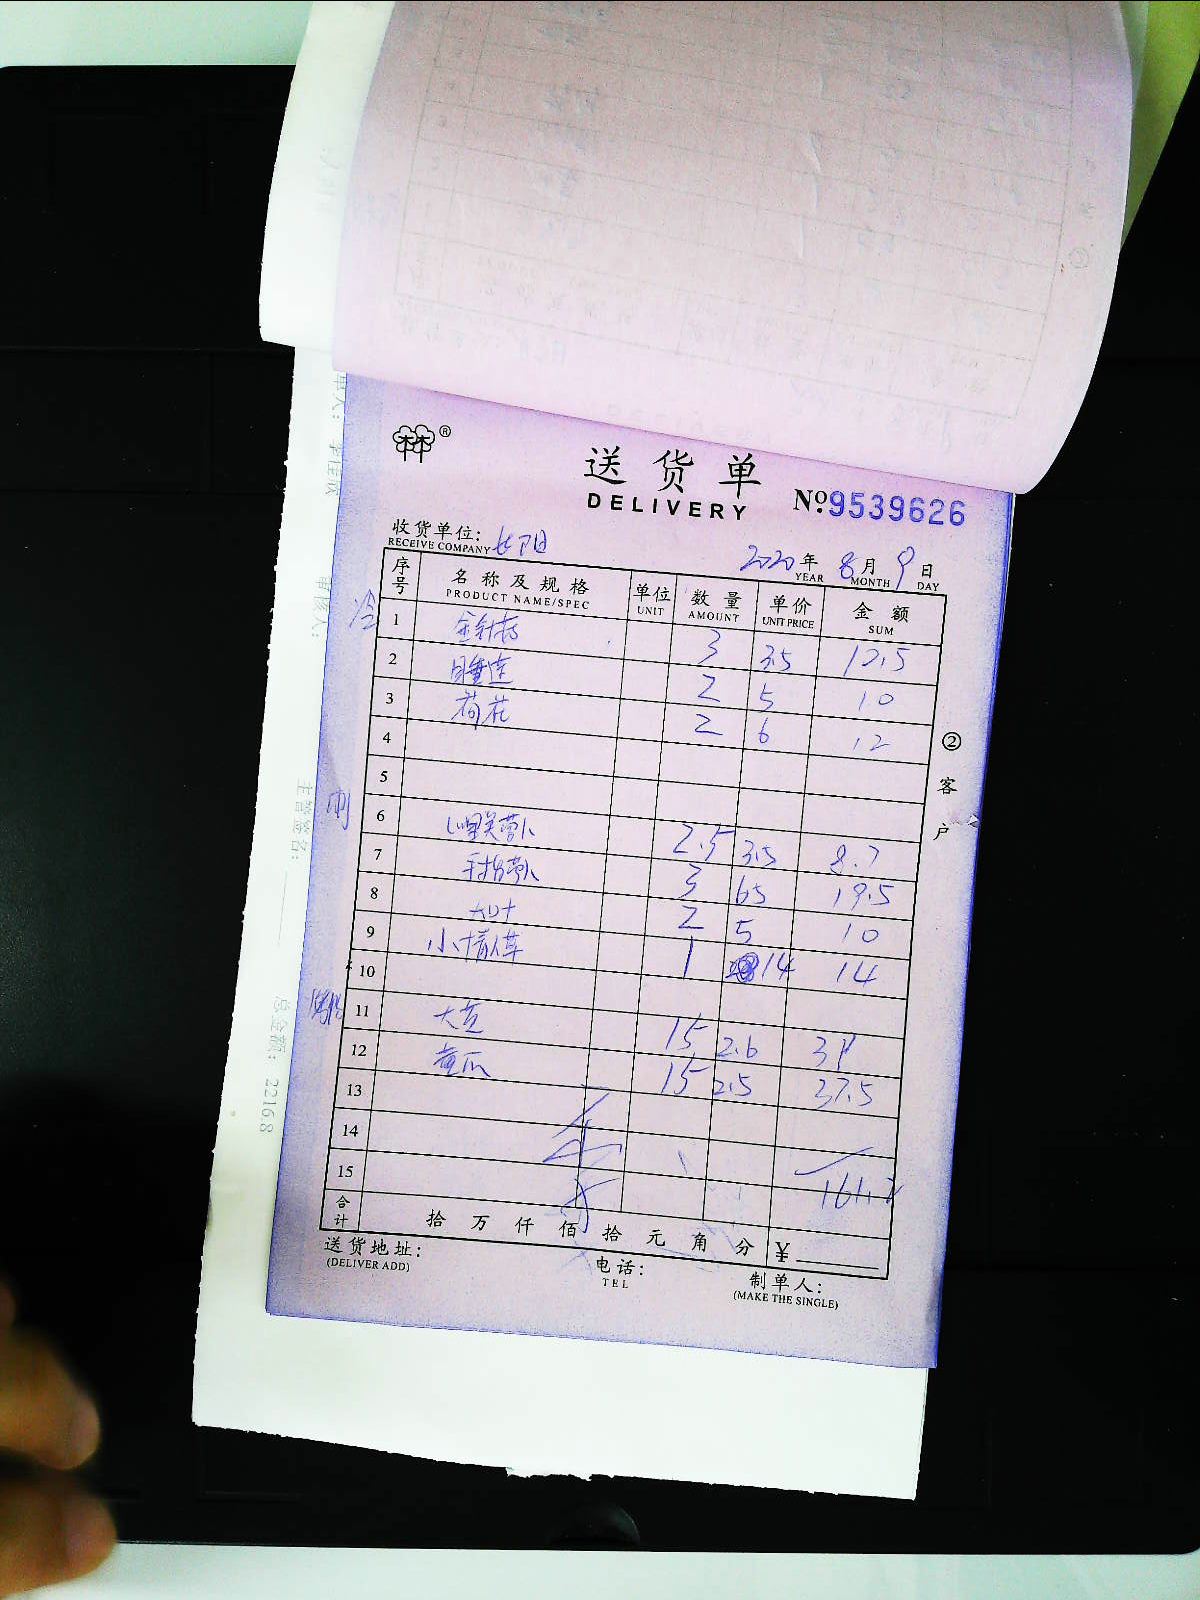 ®
送货单
DELIVERY
№9539626
收货单位:
RECEIVE COMPANY
2020年 8月 9日
YEAR MONTH DAY
序号 名称及规格 单位 数量 单价 金额
PRODUCT NAME/SPEC UNIT AMOUNT UNIT PRICE SUM
冷
1 金针菇 3 3.5 12.5
2 2 5 10
3 荷花 2 6 12
4
5
6 2.5 3.5 8.7
7 3 65 19.5
8 2 5 10
9 小情人草 1 14 14
10
11 大豆 15 2.6 39
12 黄瓜 15 2.5 37.5
13
14
15 161.2
合计 拾 万 仟 佰 拾 元 角 分 ¥
送货地址:
(DELIVER ADD)
电话:
TEL
制单人:
(MAKE THE SINGLE)
②客户
审核人:
主管签名:
总金额: 2216.8